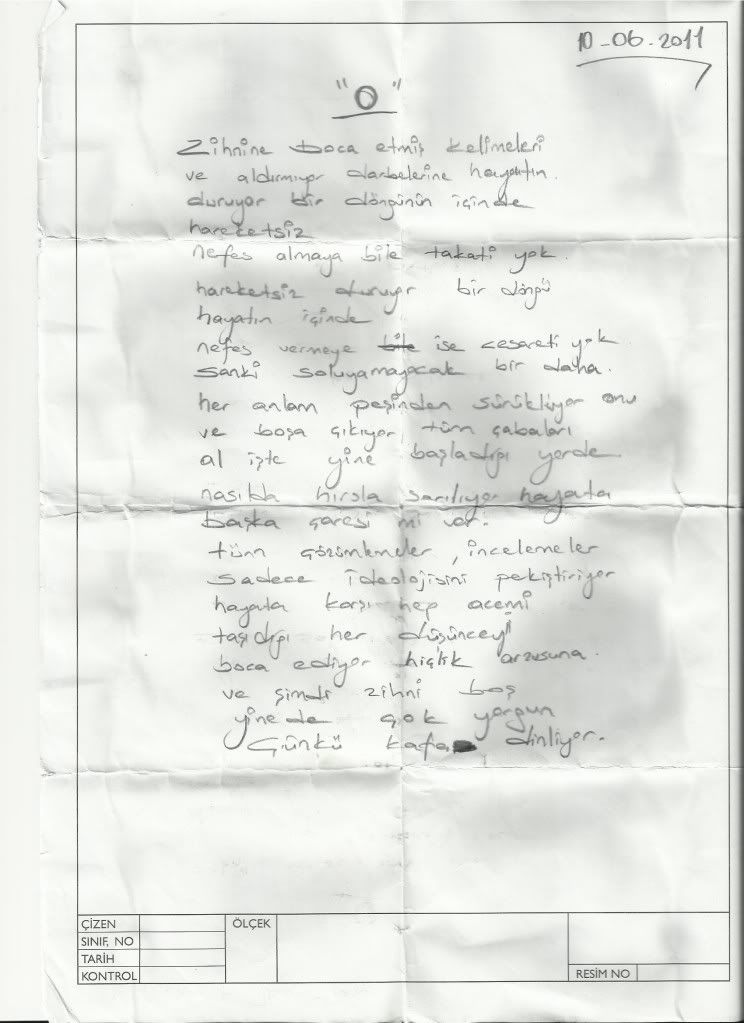 10-06-2011
"O"
Zihnine boca etmiş kelimeleri
ve aldırmıyor darbelerine hayatın.
duruyor bir döngünün içinde
hareketsiz
nefes almaya bile takati yok.
hareketsiz duruyor bir döngü
hayatın içinde
nefes vermeye bile ise cesareti yok
sanki soluyamayacak bir daha.
her anlam peşinden sürüklüyor onu
ve boşa çıkıyor tüm çabaları
al işte yine başladığı yerde.
nasılda hırsla sarılıyor hayata
başka çaresi mi var.
tüm çözümlemeler, incelemeler
sadece ideolojisini pekiştiriyor
hayata karşı hep acemi
taşıdığı her düşünceyi
boca ediyor hiçlik arzusuna.
ve şimdi zihni boş
yinede çok yorgun
Çünkü kafa dinliyor.
ÇİZEN
SINIF, NO
TARİH
KONTROL
ÖLÇEK
RESİM NO